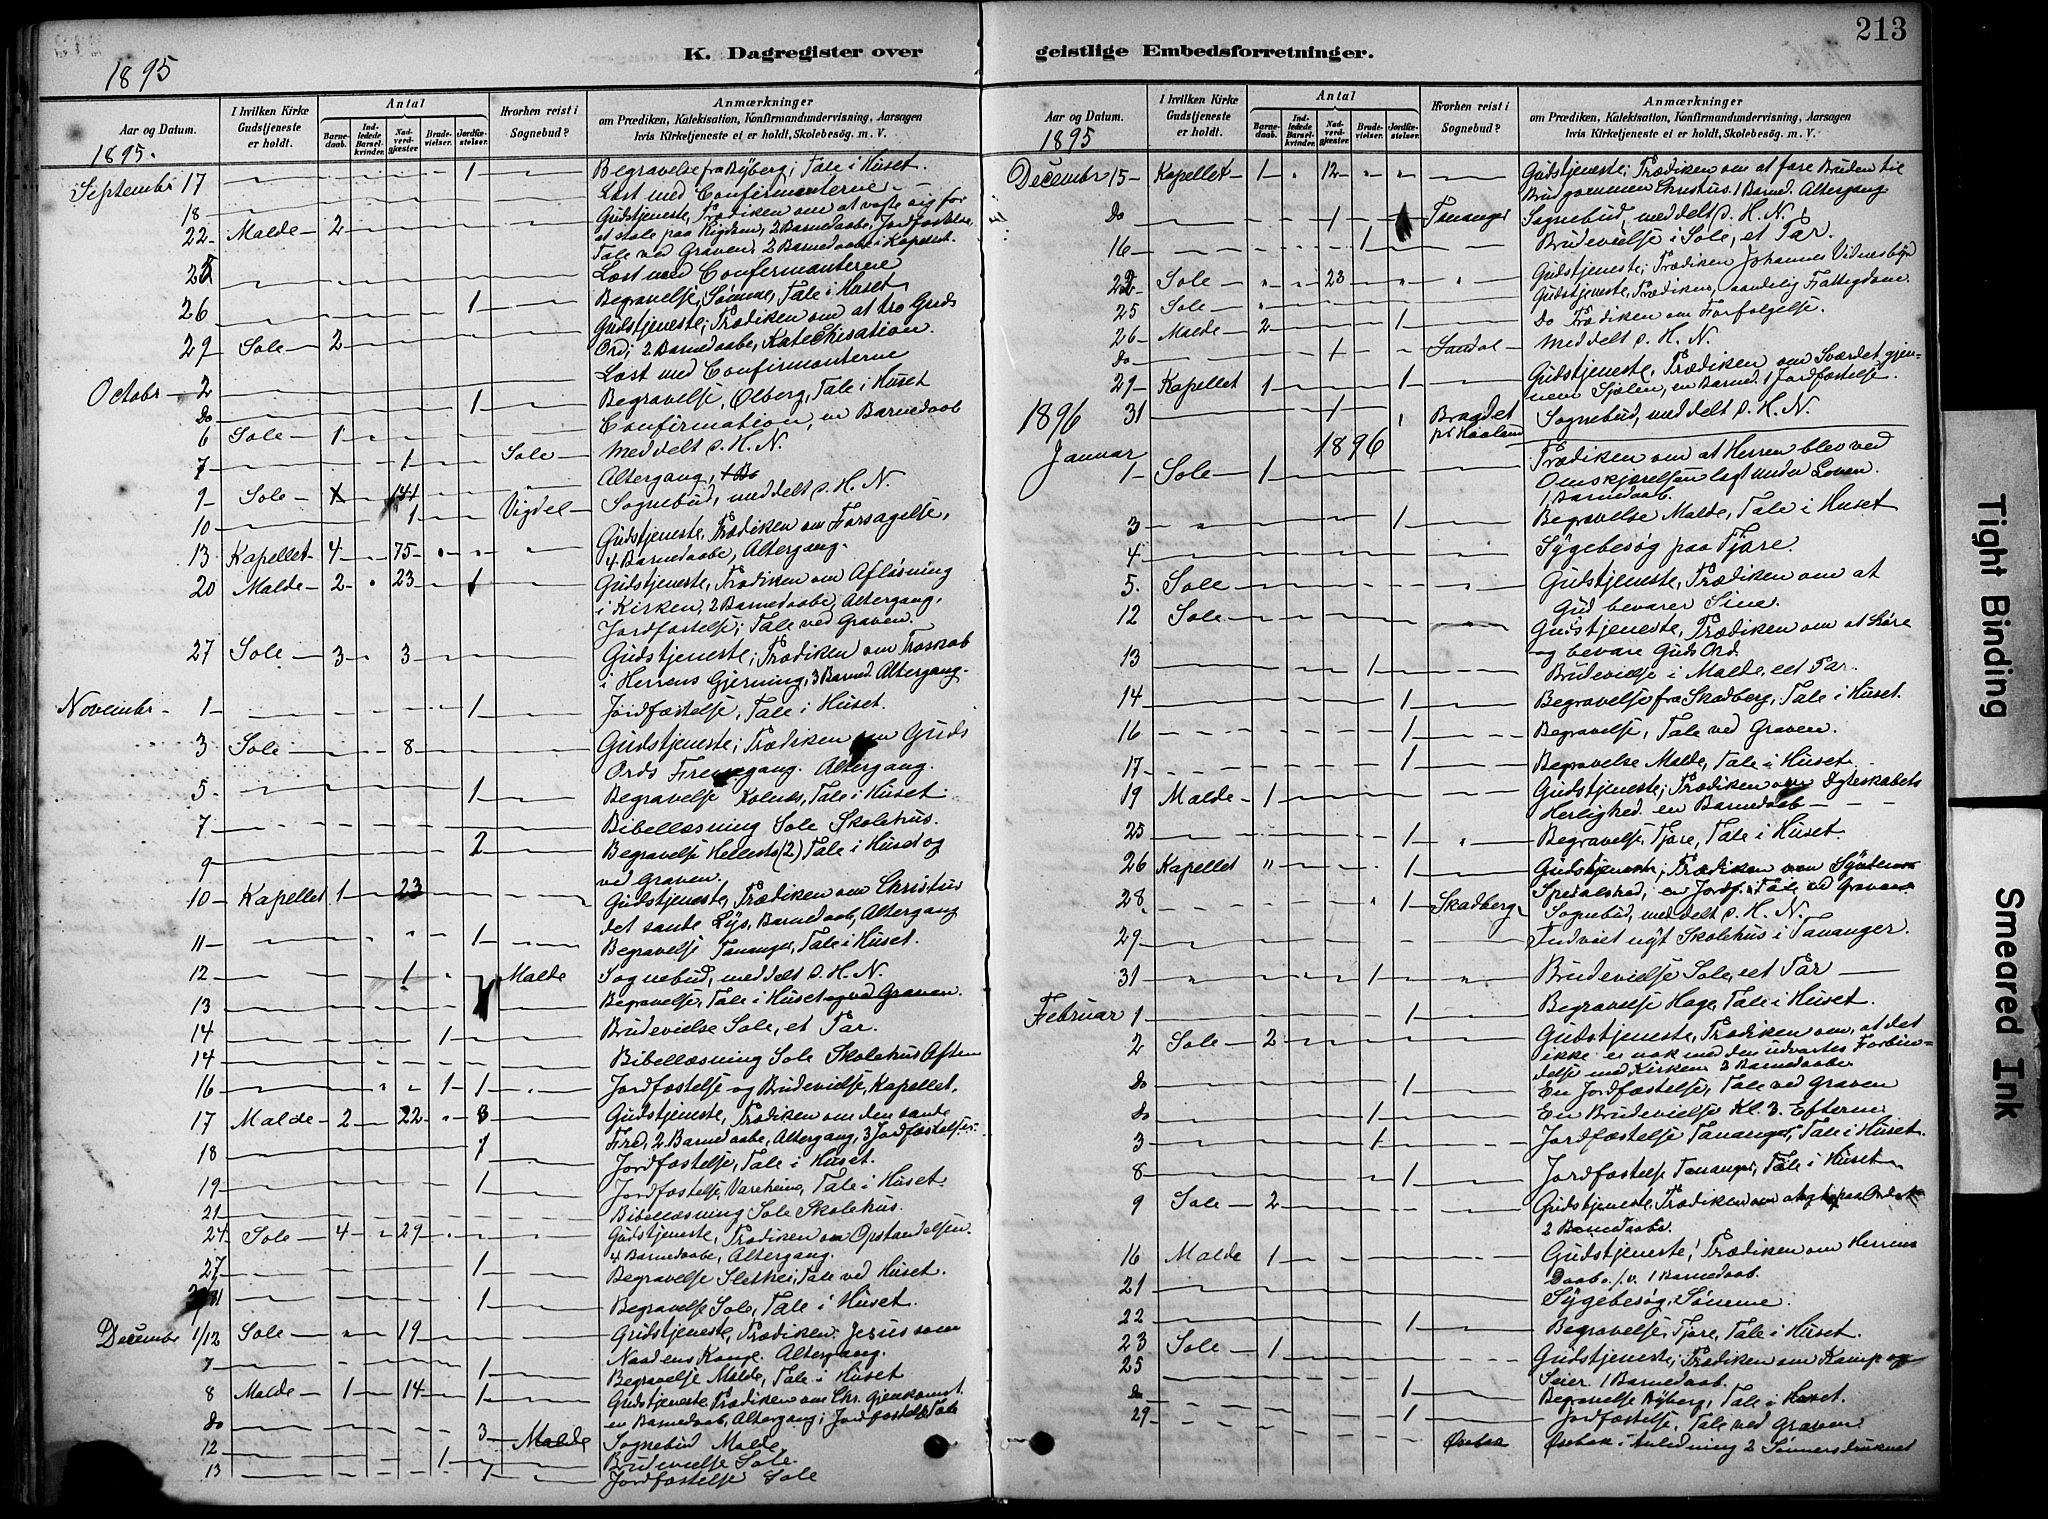 213
K. Dagregister over geistlige Embedsforretninger.
1895
Aar og Datum.
1895.
I hvilken Kirke Gudstjeneste er holdt.
Antal
Barne-daab.
Ind-ledede Barsel-kvinder.
Nad-verd-gjæster
Brude-vielser.
Jordfæ-stelser.
Hvorhen reist i Sognebud?
Anmærkninger
om Prædiken, Katekisation, Konfirmandundervisning, Aarsagen
hvis Kirketjeneste ei er holdt, Skolebesøg. m. V.
Septembr 17 1 Begravelse fra Ryberg; Tale i Huset.
18 Læst med Confirmanterne
22 Malde 2 Gudstjeneste, Prædiken om at vogte sig for
at stole paa Rigdom, 2 Barnedaabe, Jordfæstelse
Tale ved Graven, 2 Barnedaabe i Kapellet.
25 Læst med Confirmanterne
26 1 Begravelse, Sömme, Tale i Huset
29 Sole 2 Gudstjeneste; Prædiken om at tro Guds
Ord; 2 Barnedaabe, Katechisation.
Octobr 2 Læst med Confirmanterne
Do 1 Begravelse, Ölberg, Tale i Huset
6 Sole 1 Confirmation, en Barnedaab
7 1 Sole Meddelt d. H. N.
9 Sole 141 Altergang
10 1 Vigdel Sognebud, meddelt d. H. N.
13 Kapellet 4 75 Gudstjeneste, Prædiken om Forsagelse,
4 Barnedaabe, Altergang.
20 Malde 2 23 1 Gudstjeneste, Prædiken om Aflösning
i Kirken, 2 Barnedaabe, Altergang,
Jordfæstelse; Tale ved Graven.
27 Sole 3 3 Gudstjeneste; Prædiken om Troskab
i Herrens Gjerning, 3 Barned. Altergang.
Novembr 1 1 Jordfæstelse, Tale i Huset.
3 Sole 8 Gudstjeneste; Prædiken om Guds
Ords Fremgang. Altergang.
5 1 Begravelse Kolnes, Tale i Huset.
7 Bibellæsning Sole Skolehus.
9 2 Begravelse Hellestö (2) Tale i Huset og
ved Graven.
10 Kapellet 1 23 Gudstjeneste, Prædiken om Christus
det sande Lys, Barnedaab, Altergang
11 1 Begravelse Tananger, Tale i Huset.
12 1 Malde Sognebud, meddelt d. H. N.
13 1 Begravelse, Tale i Huset og ved Graven.
14 1 Brudevielse Sole, et Par.
14 Bibellæsning Sole Skolehus Aften
16 1 1 Jordfæstelse og Brudevielse, Kapellet.
17 Malde 2 22 3 Gudstjeneste, Prædiken om den sande
Fred, 2 Barnedaabe, Altergang, 3 Jordfæstelser
18 1 Jordfæstelse, Tale i Huset.
19 1 Jordfæstelse, Vareheim, Tale i Huset
21 Bibellæsning Sole Skolehus.
24 Sole 4 29 Gudstjeneste, Prædiken om Opstandelsen.
4 Barnedaabe, Altergang.
27 1 Begravelse Slethei, Tale ved Huset.
1 Begravelse Sole, Tale i Huset.
Decembr 1/12 Sole 19 Gudstjeneste, Prædiken: Jesus som
Naadens Konge. Altergang.
7 1 Begravelse Malde, Tale i Huset
8 Malde 1 14 1 Gudstjeneste Prædiken om Chr. Gjenkomst
en Barnedaab, Altergang; Jordfæstelse, Tale
Do 3 Malde Sognebud Malde.
12 1 Brudevielse Sole.
13 1 Jordfæstelse Sole
Aar og Datum.
1895
I hvilken Kirke Gudstjeneste er holdt.
Antal
Barne-daab.
Ind-ledede Barsel-kvinder.
Nad-verd-gjæster
Brude-vielser.
Jordfæ-stelser.
Hvorhen reist i Sognebud?
Anmærkninger
om Prædiken, Katekisation, Konfirmandundervisning, Aarsagen
hvis Kirketjeneste ei er holdt, Skolebesøg. m. V.
Decembr 15 Kapellet 1 12 Gudstjeneste; Prædiken om at føre Bruden til
Brudgommen Christus. 1 Barned. Altergang
Do 1 Tananger Sognebud, meddelt d. H. N.
16 1 Brudevielse i Sole, et Par.
22 Sole 23 Gudstjeneste; Prædiken Johannes Vidnesbyrd
25 Sole Gudstjeneste, Prædiken, aandelig Fattigdom.
26 Malde 2 1 Do Prædiken om Forfølgelse.
Do 1 Sandal Meddelt d. H. N.
29 Kapellet 1 1 Gudstjeneste, Prædiken om Sværdet gjen-
nem Sjælen, en Barned. 1 Jordfæstelse.
1896 31 1 Sognebud, meddelt d. H. N.
1896
Januar 1 Sole 1 Prædiken om at Herren blev ved
Omskjærelsen lagt under Loven.
1 Barnedaab.
3 1 Begravelse Malde, Tale i Huset
4 Sygebesøg paa Tjøre.
5. Sole Gudstjeneste, Prædiken om at
Gud bevarer Sine.
12 Sole Gudstjeneste, Prædiken om at høre
og bevare Guds Ord
13 1 Brudevielse i Malde, eet Par.
14 1 Begravelse fra Skadberg, Tale i Huset.
16 1 Begravelse, Tale ved Graven.
17 1 Begravelse Malde, Tale i Huset.
19 Malde 1 Gudstjeneste; Prædiken om Ægteskabets
Herlighed en Barnedaab
25 1 Begravelse Tjøre, Tale i Huset.
26 Kapellet 1 Gudstjeneste; Prædiken om Syndens
Spedalskhed, en Jordf. Tale ved Graven
28 1 Skadberg Sognebud, meddelt d. H. N.
29 Indviet nyt Skolehus i Tananger.
31 1 Brudevielse Sole, eet Par
Februar 1 1 Begravelse Hage, Tale i Huset.
2 Sole 2 Gudstjeneste, Prædiken om, at det
ikke er nok med den udvortes Forbin-
delse med Kirken 2 Barnedaabe
Do 1 En Jordfæstelse, Tale ved Graven
Do 1 En Brudevielse Kl. 3. Efterm.
3 1 Jordfæstelse Tananger, Tale i Huset.
8 1 Jordfæstelse Tananger, Tale i Huset
9 Sole 2 Gudstjeneste, Prædiken om
2 Barnedaabe.
16 Malde 1 Gudstjeneste, Prædiken om Herrens
Daab 1 Barnedaab.
21 Sygebesøg, Sømme.
22 1 Begravelse, Tjøre, Tale i Huset.
23 Sole 1 Gudstjeneste; Prædiken om Kamp og
Seier. 1 Barnedaab.
25 1 Begravelse Ryberg, Tale i Huset.
Do 1 Jordfæstelse, Tale ved Graven
29 i Anledning 2 Sønners
Tight Binding
Smeared Ink